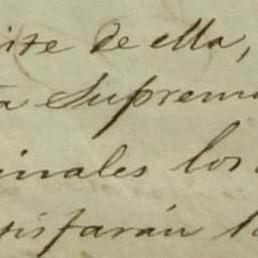 ite de ella,
a Suprem
inales los
isfarán l